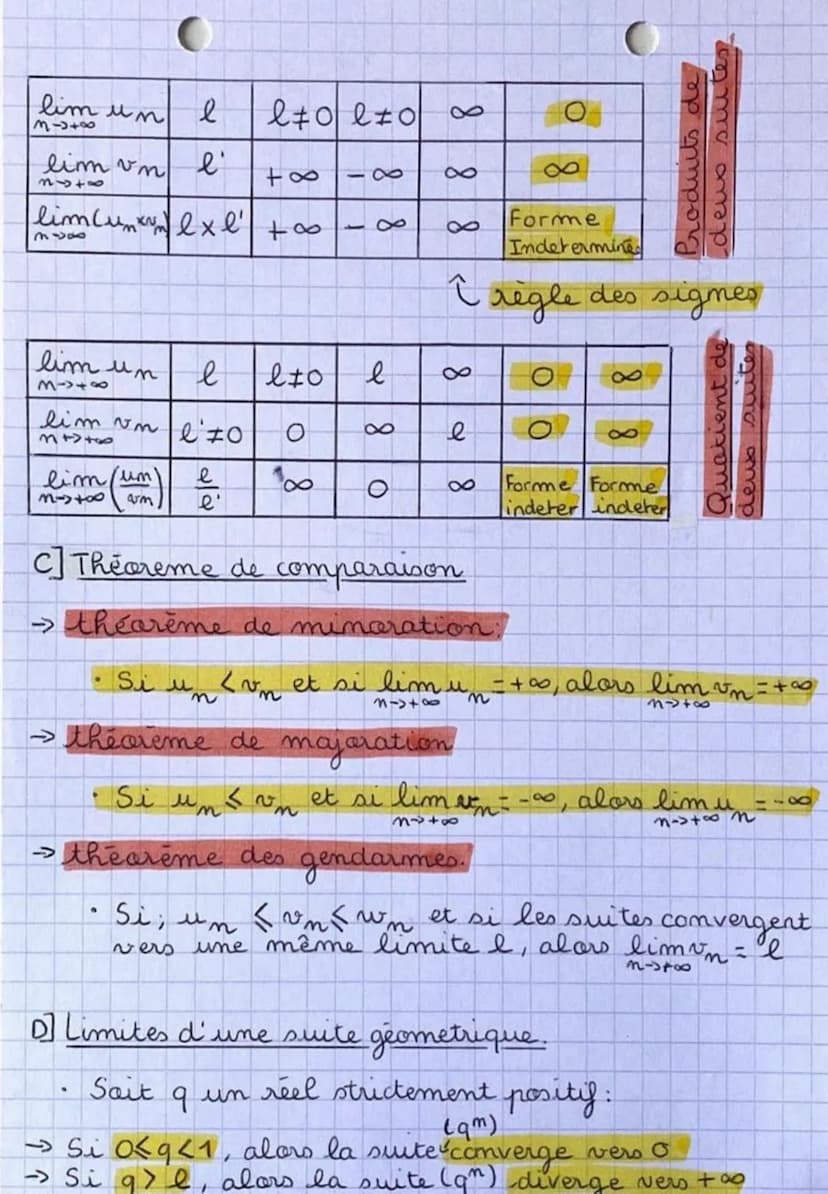 lim un n→+∞ | l | l≠0 | l≠0 | ∞ | 0
lim vn n→+∞ | l' | +∞ | -∞ | ∞ | ∞
lim(un×vn) n→∞ | l x l' | +∞ | -∞ | ∞ | Forme Indeterminé
Produits de deux suites
↑ règle des signes
lim un n→+∞ | l | l≠0 | l | ∞ | 0 | ∞
lim vn n→+∞ | l'≠0 | 0 | ∞ | l | 0 | ∞
lim(un/vn) n→+∞ | l/l' | ∞ | 0 | ∞ | Forme indeter | Forme indeter
Quotient de deux suites
C] Théoreme de comparaison
→ théorème de minoration:
· Si un < vn et si lim un = +∞, alors lim vn = +∞
n→+∞ n→+∞
→ théorème de majoration
· Si un ⩽ vn et si lim vn = -∞, alors lim un = -∞
n→+∞ n→+∞
→ théorème des gendarmes.
· Si; un ⩽ vn ⩽ wn et si les suites convergent
vers une même limite l, alors lim vn = l
n→+∞
D] Limites d'une suite géometrique.
· Soit q un réel strictement positif:
→ Si 0⩽q<1, alors la suite (qn) converge vers 0
→ Si q> l, alors la suite (qn) diverge vers +∞